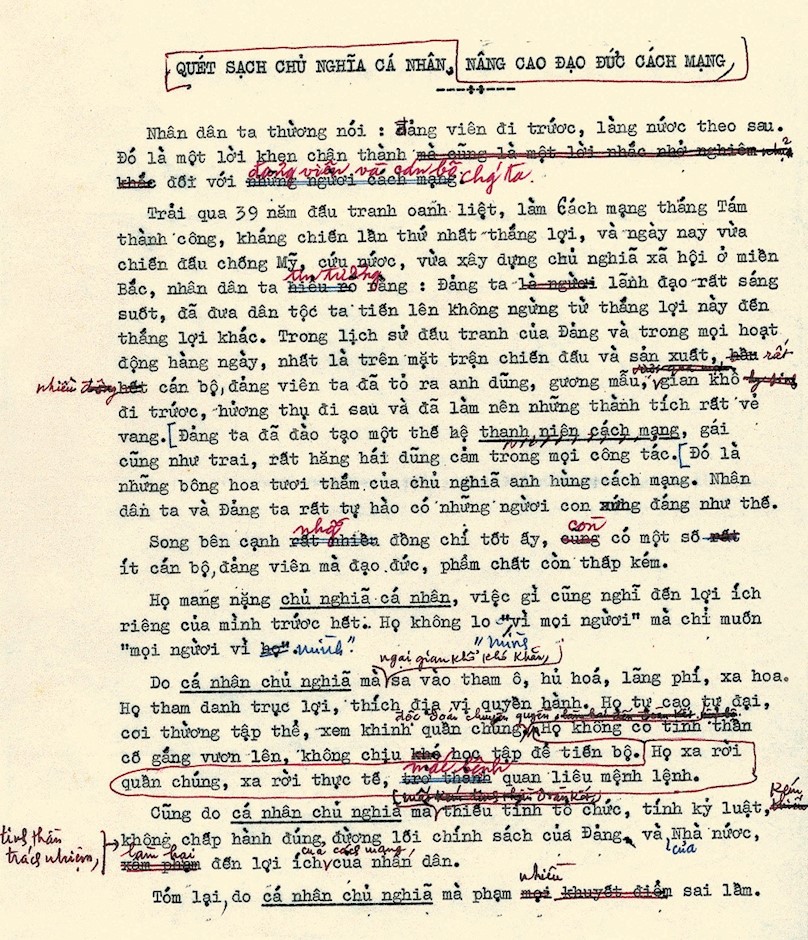 QUÉT SẠCH CHỦ NGHĨA CÁ NHÂN, NÂNG CAO ĐẠO ĐỨC CÁCH MẠNG
---++---
Nhân dân ta thường nói : đảng viên đi trước, làng nước theo sau.
Đó là một lời khen chân thành mà cũng là một lời nhắc nhở nghiêm
đảng viên và cán bộ chúng ta.
khắc đối với những người cách mạng.
Trải qua 39 năm đấu tranh oanh liệt, làm Cách mạng thắng Tám
thành công, kháng chiến lần thứ nhất thắng lợi, và ngày nay vừa
chiến đấu chống Mỹ, cứu nước, vừa xây dựng chủ nghĩa xã hội ở miền
tin tưởng
Bắc, nhân dân ta hiểu rõ rằng : Đảng ta là người lãnh đạo rất sáng
suốt, đã đưa dân tộc ta tiến lên không ngừng từ thắng lợi này đến
thắng lợi khác. Trong lịch sử đấu tranh của Đảng và trong mọi hoạt
động hàng ngày, nhất là trên mặt trận chiến đấu và sản xuất, hầu rất
nhiều hết cán bộ,đảng viên ta đã tỏ ra anh dũng, gương mẫu, gian khổ
đi trước, hưởng thụ đi sau và đã làm nên những thành tích rất vẻ
vang.[Đảng ta đã đào tạo một thế hệ thanh niên cách mạng, gái
cũng như trai, rất hăng hái dũng cảm trong mọi công tác.[Đó là
những bông hoa tươi thắm của chủ nghĩa anh hùng cách mạng. Nhân
dân ta và Đảng ta rất tự hào có những người con xứng đáng như thế.
những còn
Song bên cạnh rất nhiều đồng chí tốt ấy, cũng có một số rất
ít cán bộ,đảng viên mà đạo đức, phẩm chất còn thấp kém.
Họ mang nặng chủ nghĩa cá nhân, việc gì cũng nghĩ đến lợi ích
riêng của mình trước hết. Họ không lo "vì mọi người" mà chỉ muốn
"mọi người vì họ". mình".
"mình
ngại gian khổ khó khăn,
Do cá nhân chủ nghĩa mà sa vào tham ô, hủ hoá, lãng phí, xa hoa.
Họ tham danh trục lợi, thích địa vị quyền hành. Họ tự cao tự đại,
độc đoán chuyên quyền,
coi thường tập thể, xem khinh quần chúng, Họ không có tinh thần
cố gắng vươn lên, không chịu khó học tập để tiến bộ. Họ xa rời
mắc bệnh
quần chúng, xa rời thực tế, trở thành quan liêu mệnh lệnh.
mất đoàn kết,
Cũng do cá nhân chủ nghĩa mà thiếu tính tổ chức, tính kỷ luật, kém
tinh thần trách nhiệm, không chấp hành đúng đường lối chính sách của Đảng và của Nhà nước,
làm hại của cách mạng,
xâm phạm đến lợi ích của nhân dân.
nhiều
Tóm lại,do cá nhân chủ nghĩa mà phạm mọi khuyết điểm sai lầm.